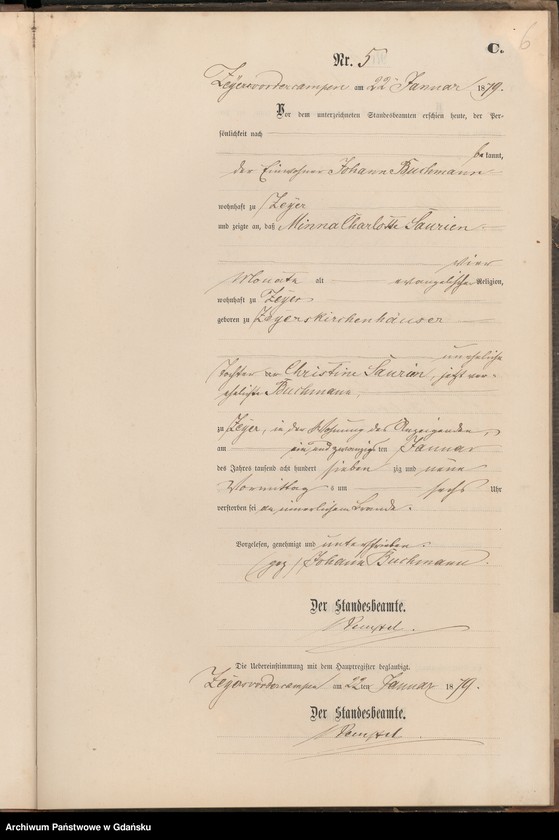 C. 6
Nr. 5
Zeyersvordercampen am 22 Januar 1879.
Vor dem unterzeichneten Standesbeamten erschien heute, der Per-
sönlichkeit nach
be kannt,
der Einwohner Johann Buchmann
wohnhaft zu Zeyer
und zeigte an, daß Minna Charlotte Saurien
vier
Monate alt evangelischer Religion,
wohnhaft zu Zeyer
geboren zu Zeyerskirchenhäuser
uneheliche
Tochter der Christine Saurien, jetzt ver-
ehelichte Buchmann,
zu Zeyer, in der Wohnung des Anzeigenden,
am ein und zwanzigsten Januar
des Jahres tausend acht hundert sieben zig und neun
Vormittags um sechs Uhr
verstorben sei an innerlichem Brande.
Vorgelesen, genehmigt und unterschrieben.
(gez) Johann Buchmann.
Der Standesbeamte.
Die Uebereinstimmung mit dem Hauptregister beglaubigt.
Zeyersvordercampen am 22ten Januar 1879.
Der Standesbeamte.
Archiwum Państwowe w Gdańsku